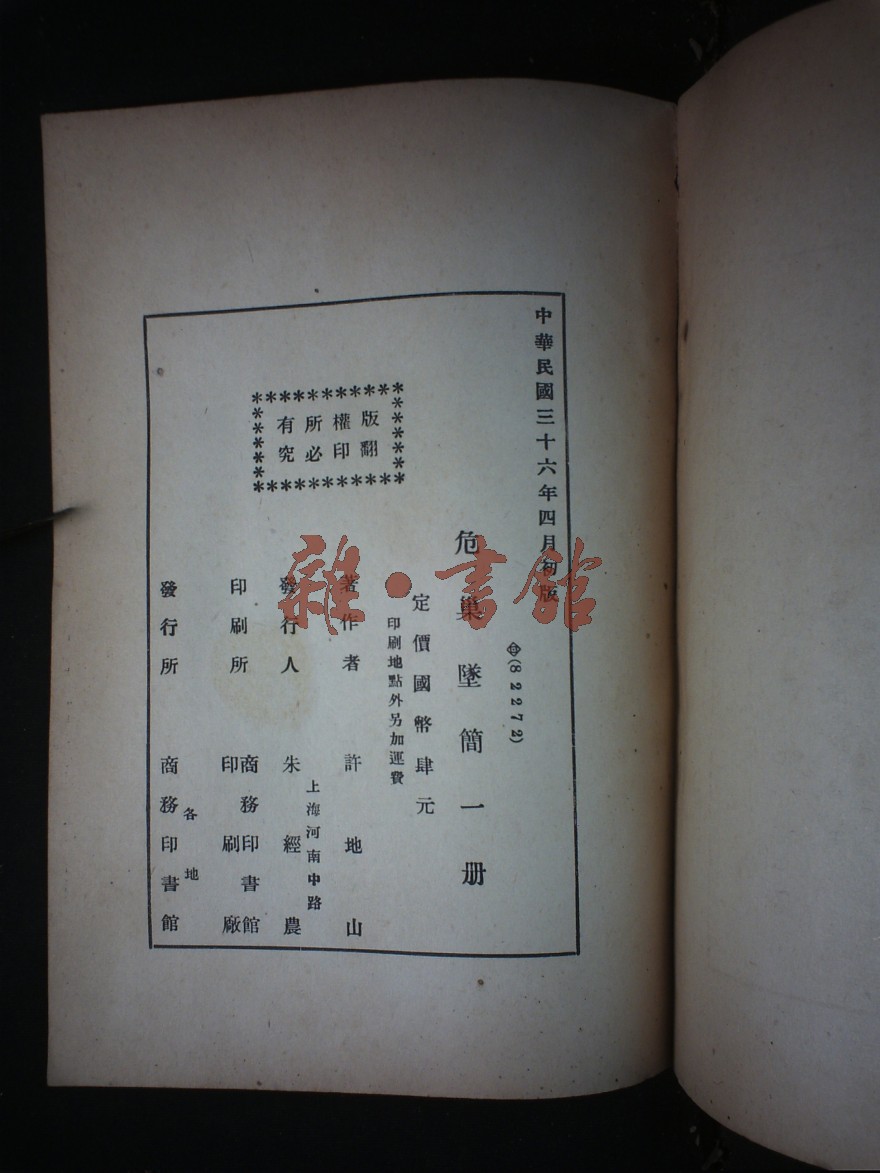 中華民國三十六年四月初版
㊥(82272)
危巢墜簡一册
定價國幣肆元
印刷地點外另加運費
著作者 許地山
上海河南中路
發行人 朱經農
印刷所 商務印書館印刷廠
各地
發行所 商務印書館
版權所有
翻印必究
雜·書館